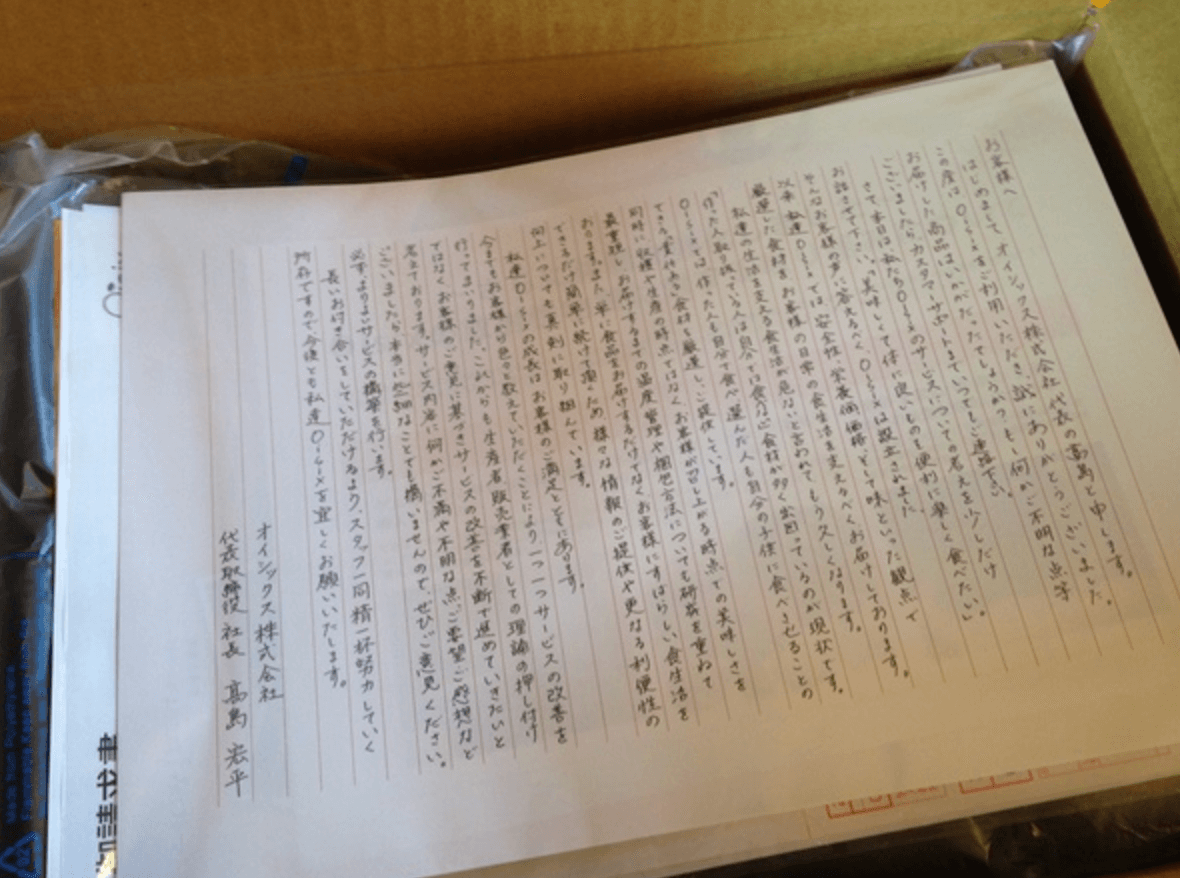 お客様へ
はじめまして、オイシックス株式会社代表の高島と申します。
この度はOisixをご利用いただき誠にありがとうございました。
お届けした商品はいかがだったでしょうか？もし何かご不明な点等
ございましたらカスタマーサポートまでいつでもご連絡下さい。
さて、本日は私たちOisixのサービスについての考えを少しだけ
お話させて下さい。「美味しくて体に良いものを便利に楽しく食べたい」
そんなお客様の声に答えるべく、Oisixは設立されました。
以来、私達Oisixでは安全性、栄養価、価格、そして味といった観点で
厳選した食材を、お客様の日常の食生活を支えるべくお届けしております。
私達の生活を支える食生活が危ないと言われてもう久しくなります。
「作った人、取り扱っている人は自分では食べない」食材が多く出回っているのが現状です。
Oisixでは、作った人も自分で食べ、選んだ人も自分の子供に食べさせることの
できる、実体ある食材を厳選しご提供しています。
同時に、収穫や生産の時点ではなくお客様が召し上がる時点での美味しさを
最重視し、お届けするまでの温度管理や梱包方法についても研究を重ねて
おります。また、単に食品をお届けするだけでなくお客様にすばらしい食生活を
できるだけ簡単に続けて頂くため、様々な情報のご提供や更なる利便性の
向上についても真剣に取り組んでいます。
私達Oisixの成長はお客様のご満足とともにあります。
今までもお客様から色々と教えていただくことにより一つ一つサービスの改善を
行ってまいりました。これからも生産者、販売業者としての理論の押し付け
ではなく、お客様のご意見に基づきサービスの改善を不断で進めていきたいと
考えております。サービス内容に何かご不満や不明な点、ご要望、ご感想など
ございましたら本当に些細なことでも構いませんので、ぜひご意見ください。
必ず、よりよいサービスの構築を行います。
長いお付き合いをしていただけるよう、スタッフ一同精一杯努力していく
所存ですので今後とも私達Oisixを宜しくお願いいたします。
オイシックス株式会社
代表取締役 社長 高島 宏平
請求書